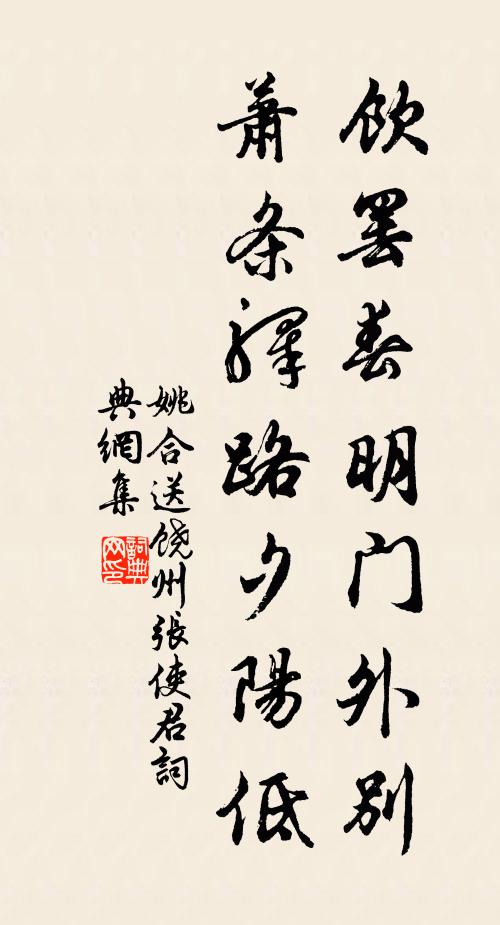 飲罷春明門外別
蕭条驛路夕陽低
姚合送饒州張使君詞
典網集
詞典網印